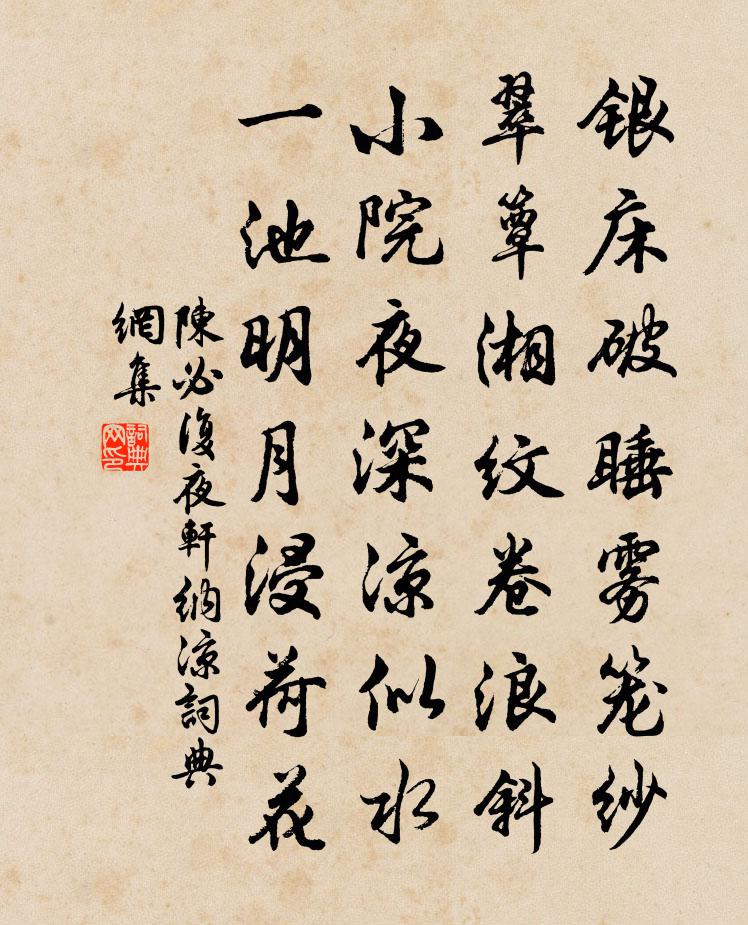 银床破睡雾笼纱
翠簟湘纹卷浪斜
小院夜深凉似水
一池明月浸荷花
陳必復夜軒納涼詞典
網集
詞典
网印